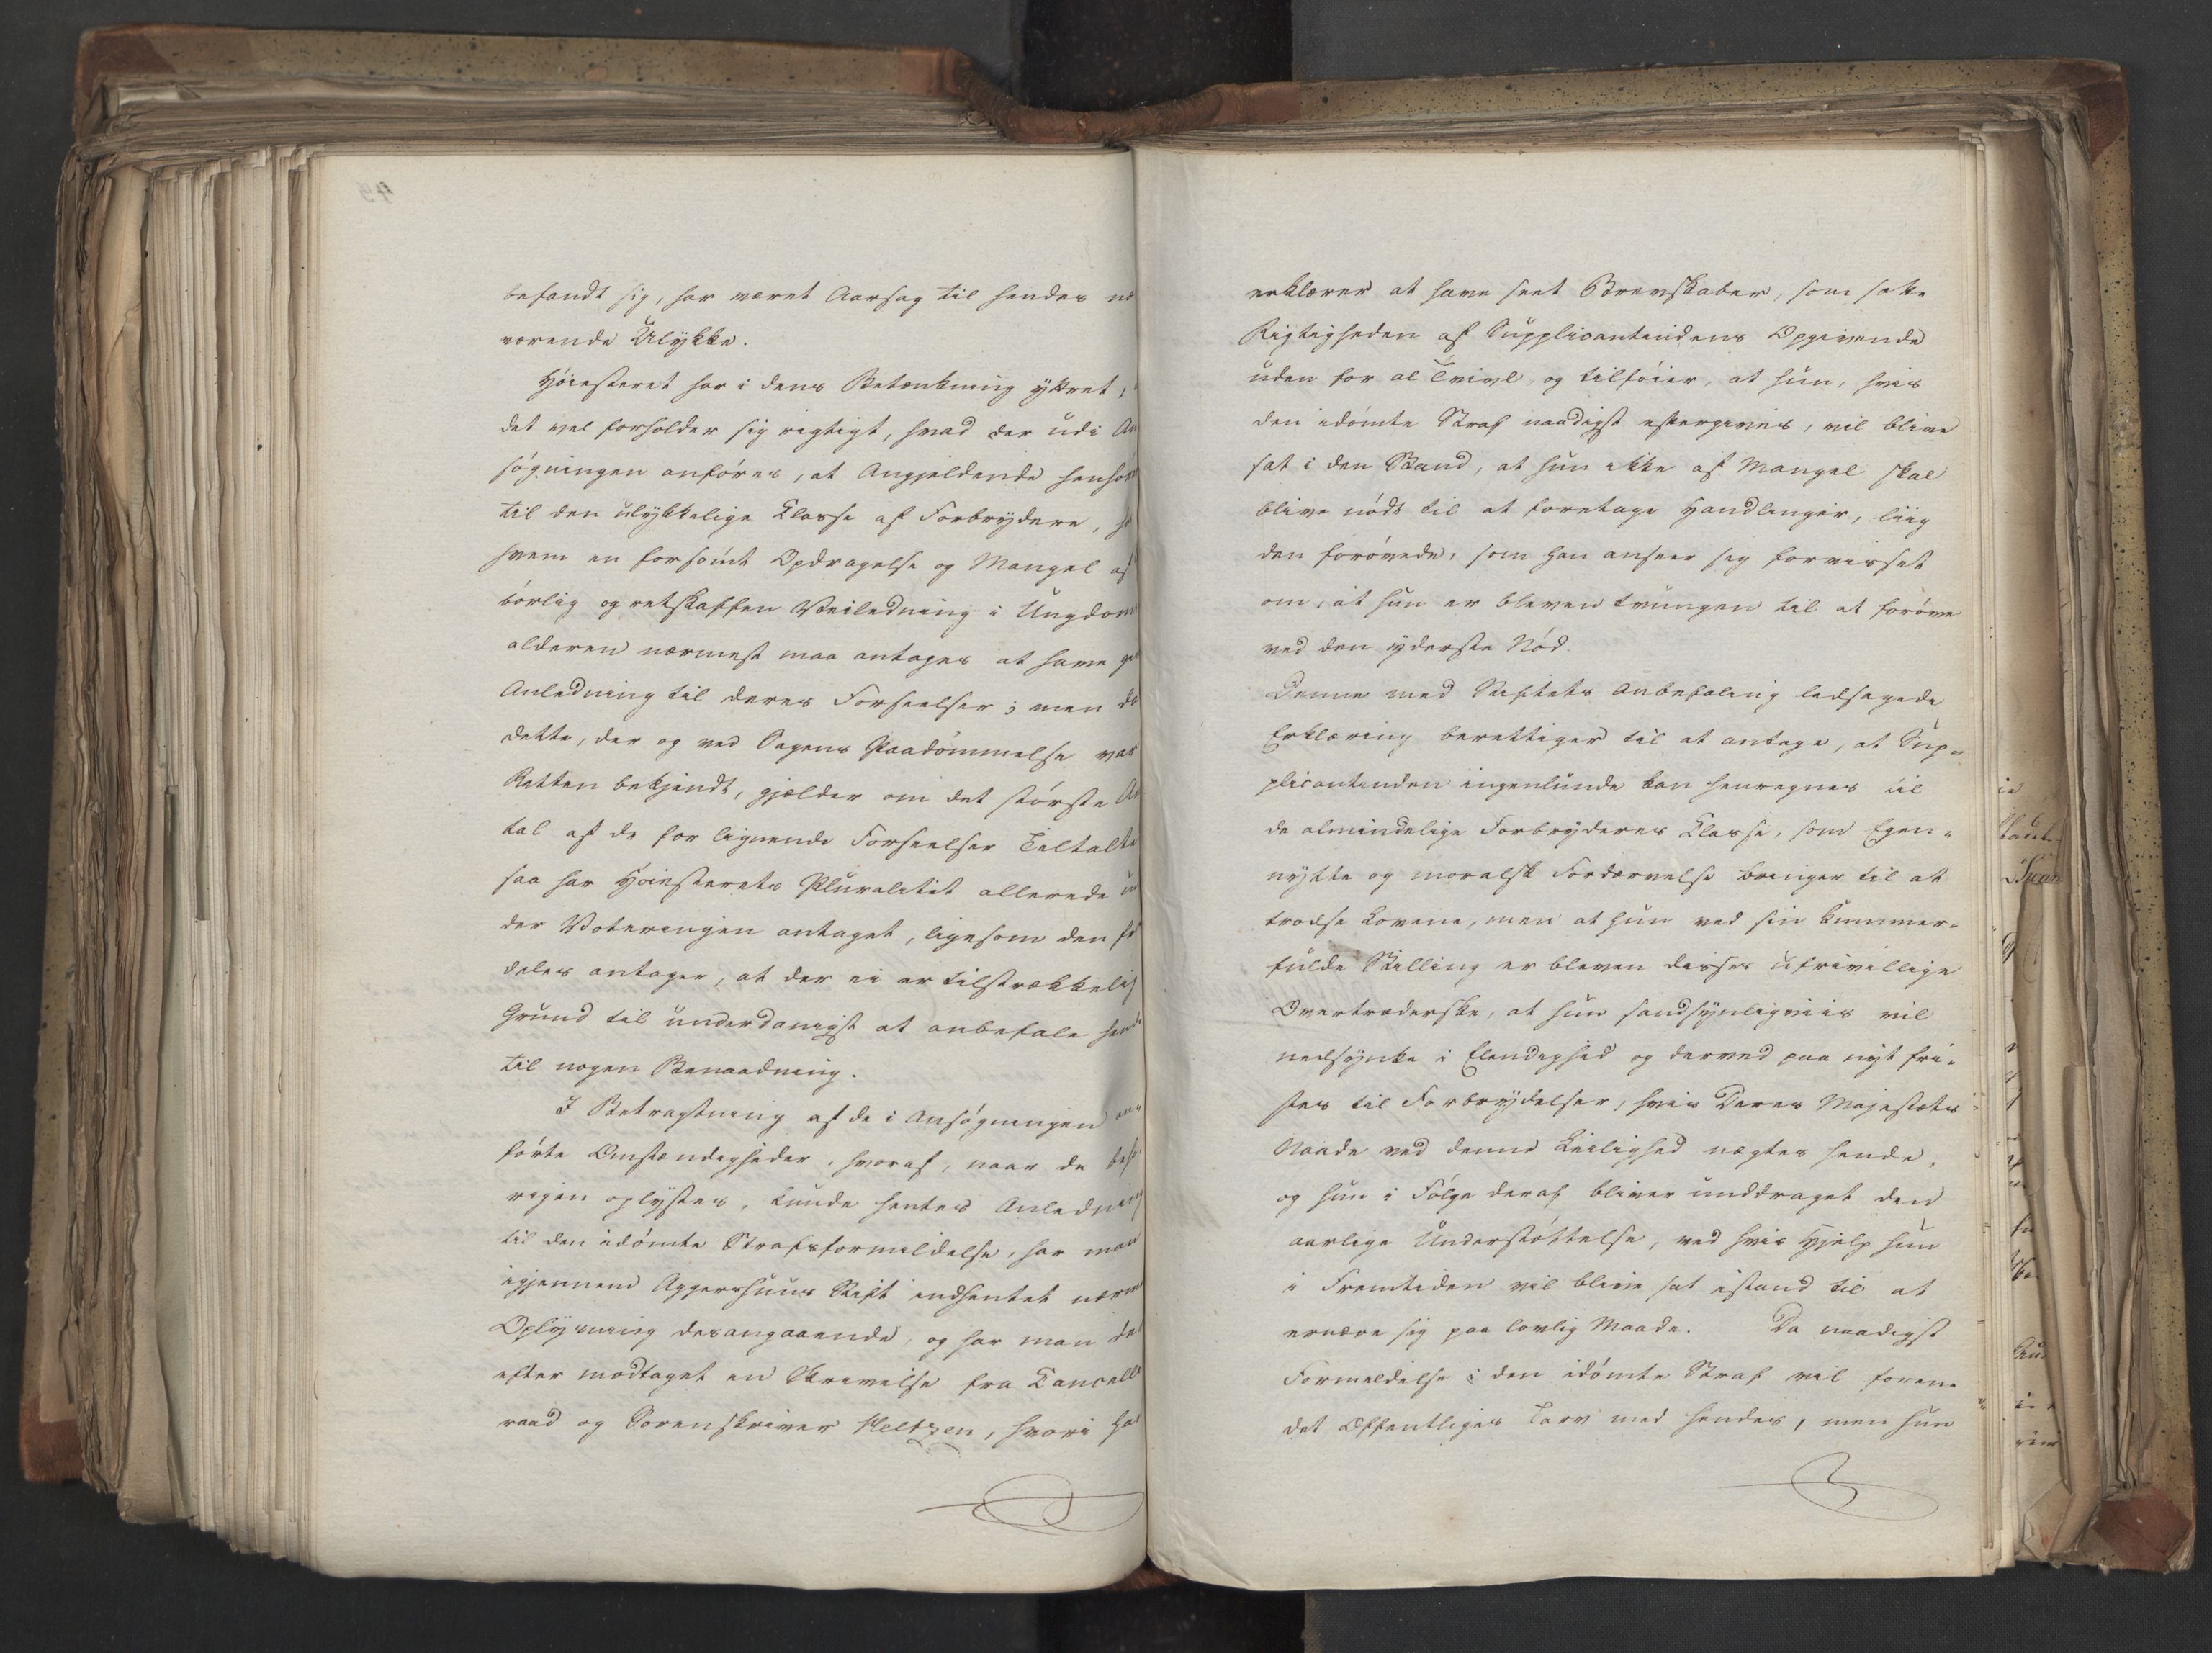 befandt sig, har været Aarsag til hendes næ
værende Ulykke.
Høiesteret har i dens Betænkning yttret,
det vel forholder sig rigtigt, hvad der udi An
søgningen anføres, at Angjeldende henhøre
til den ulykkelige Classe af Forbrydere, 
hvem en forsømt Opdragelse og Mangel af
børlig og retskaffen Veiledning i Ungdoms
alderen nærmest maa antages at have gi
Anledning til deres Forseelser; men da
dette, der og ved Sagens Paadømmelse var
Retten bekjendt, gjælder om det største An
tal af de for lignende Forseelser Tiltalte
saa har Høiesterets Pluralitet allerede un
der Voteringen antaget, ligesom den fr
deles antager, at der ei er tilstrækkelig
Grund til underdanigst at anbefale hende
til nogen Benaadning.
I Betragtning af de i Ansøgningen an-
førte Omstændigheder, hvoraf, naar de behø
rigen oplystes, kunde hentes Anledning
til den idømte Strafsformildelse, har man
igjennem Aggershuus Stift indhentet nærme
Oplysning desangaaende, og har man der
efter modtaget en Skrivelse fra Cancelli
raad og Sorenskriver Heltzen, hvori han
erklærer at have seet Brevskaber, som sætte
Rigtigheden af Supplicantindens Opgivende
uden for al Tvivl, og tilføier, at hun, hvis
den idømte Straf naadigst eftergives, vil blive
sat i den Stand, at hun ikke af Mangel skal
blive nødt til at foretage Handlinger, liig
den forøvede, som han anseer sig forvisset
om, at hun er bleven tvungen til at forøve
ved den yderste Nød.
Denne med Stiftets Anbefaling ledsagede
Erklæring berettiger til at antage, at Sup-
plicantinden ingenlunde kan henregnes til
de almindelige Forbryderes Classe, som Egen-
nytte og moralsk Fordærvelse bringer til at
trodse Lovene, men at hun ved sin kummer-
fulde Stilling er bleven disses ufrivillige
Overtræderske, at hun sandsynligviis vil
nedsynke i Elendighed og derved paa nyt fri-
stes til Forbrydelser, hvis Deres Majestæts
Naade ved denne Leilighed nægtes hende,
og hun i Følge deraf bliver unddraget den
aarlige Understøttelse, ved hvis Hjelp hun
i Fremtiden vil blive sat istand til at
ernære sig paa lovlig Maade. Da naadigst
Formildelse i den idømte Straf vil forene
det Offentliges Tarv med hendes, men hun